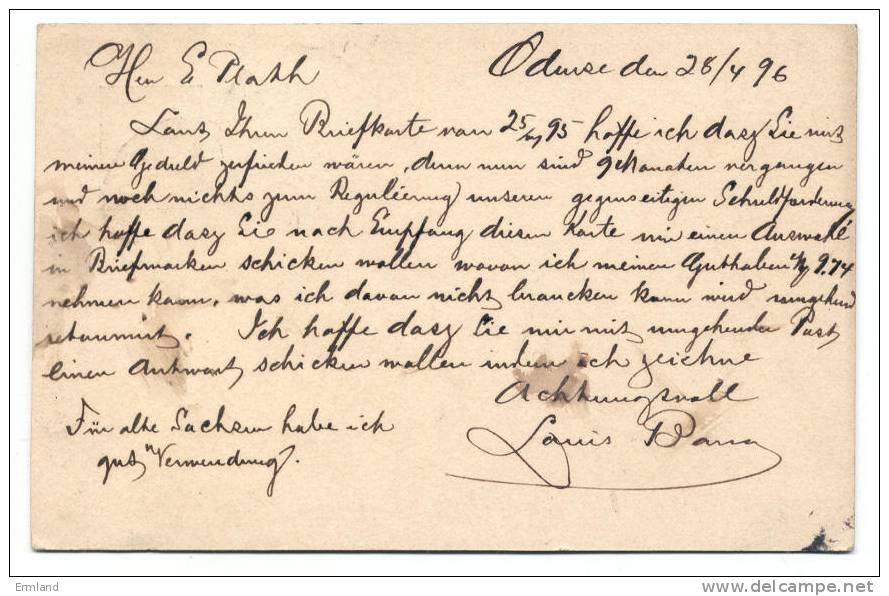 Herr E Plath Odense den 28/4 96
Laut Ihrer Briefkarte von 25/7 95 hoffe ich dasz Sie mit
meinen Geduld zufrieden wären, denn nun sind 9 Monaten vergangen
und noch nichts zum Regulierung unseren gegenseitigen Schuldforderung
ich hoffe dasz Sie nach Empfang diesen Karte mir einen Auswahl
in Briefmarken schicken wollen wovon ich meinen Guthaben 9.74
nehmen kann, was ich davon nicht brauchen kann wird umgehend
retournirt. Ich hoffe dasz Sie mir mit umgehender Post
einen Antwort schicken wollen indem ich zeichne
Achtungsvoll
Für alte Sachsen habe ich Louis
gut Verwendung.
Ermland www.delcampe.net